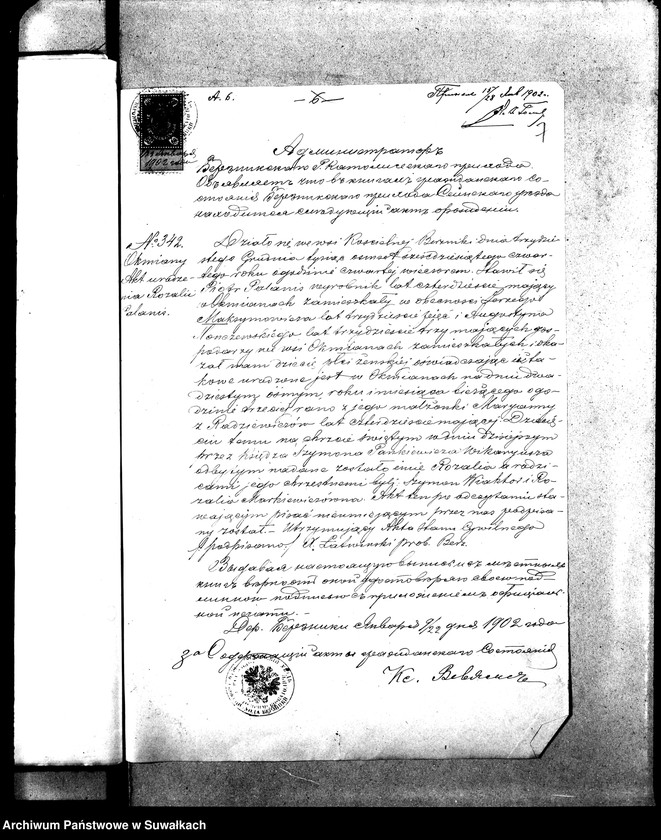 А. 6.
— 6 —
1902 г.
7
1902 года
Администраторъ
Березникского Р. Католического прихода
Объявляетъ что въ книгахъ гражданского со-
стоянія Березникского прихода Сейнского уѣзда
находится слѣдующій актъ о рожденіи.
№ 342.
Okmiany
Akt urodze-
nia Rozalii
Palanis.
Działo się we wsi Kościelnej Berzniki dnia trzydzie-
stego Grudnia tysiąc ośmset sześćdziesiątego czwar-
tego roku o godzinie czwartej wieczorem. Stawił się
Piotr Palanis wyrobnik lat czterdzieście mający
w Okmianach zamieszkały, w obecności Jerzego
Maksymowicza lat trzydzieście pięć i Augustyna
lat trzydzieście trzy mających gos-
podarzy we wsi Okmianach zamieszkałych i oka-
zał nam dziecię płci żeńskiej oświadczając iż ta-
kowe urodzone jest w Okmianach na dniu dwu-
dziestym ósmym, roku i miesiąca bieżącego o go-
dzinie trzeciej rano z jego małżonki Maryanny
z Radziewiczów lat czterdzieście mającej. Dziecię-
ciu temu na chrzcie świętym w dniu dzisiejszym
przez księdza Szymona Pankiewicza Wikaryusza
odbytym nadane zostało imie Rozalia a rodzi-
cami jego chrzestnemi byli Szymon i Ro-
zalia Markiewiczówna. Akt ten po odczytaniu sta-
wającym pisać nieumiejącym przez nas podpisa-
ny został. — Utrzymujący Akta Stanu Cywilnego
/podpisano/ prob. Berz.
Выдавая настоящую выпись
вѣрность оной удостовѣряю собствен-
подписью съ приложеніемъ оффиціаль-
ной печати. —
Дер. Березники Января 9/22 дня 1902 года
за Содержащій акты гражданского Состоянія
Кс.
Archiwum Państwowe w Suwałkach